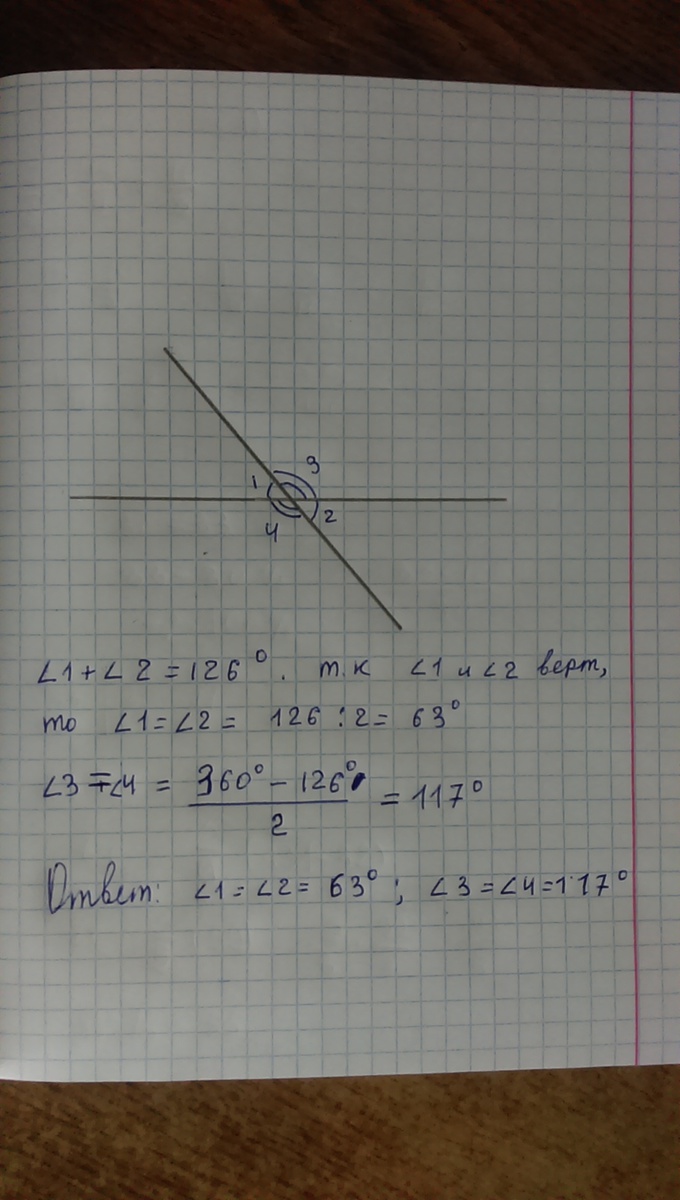 1 3
4 2
∠1+∠2=126°. т.к ∠1 и ∠2 верт,
то ∠1=∠2= 126:2= 63°
∠3=∠4 = (360°-126°)/2 = 117°
Ответ: ∠1=∠2= 63°; ∠3=∠4=117°